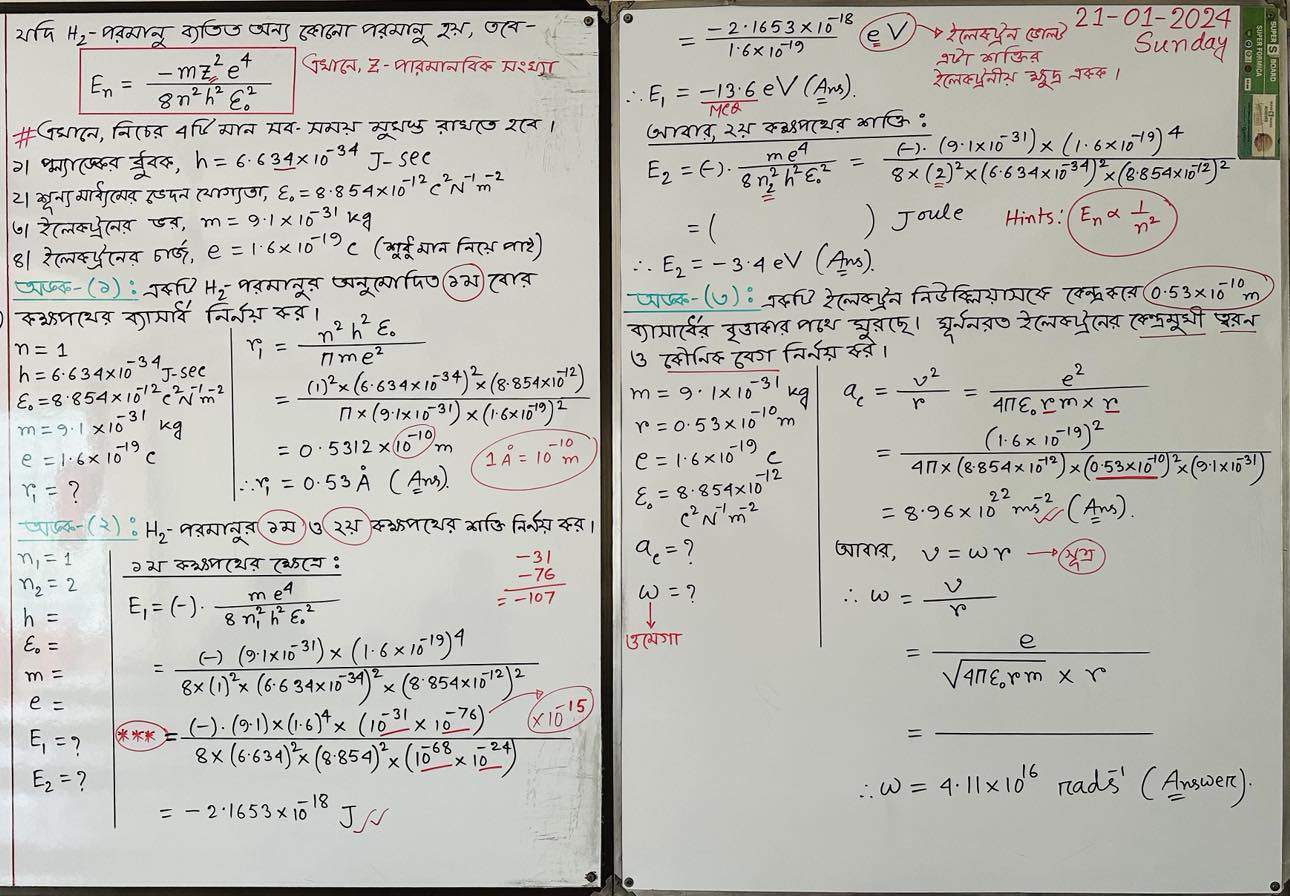 যদি H₂-পরমানু ব্যতিত অন্য কোনো পরমানু হয়, তবে-
Eₙ = -mz²e⁴ / 8n²h²ε₀²
এখানে, Z-পারমানবিক সংখ্যা
# এখানে, নিচের ৪টি মান সব-সময় মুখস্ত রাখতে হবে।
১। প্ল্যাঙ্কের ধ্রুবক, h = 6.634×10⁻³⁴ J-sec
২। শূন্য মাধ্যমের ভেদন যোগ্যতা, ε₀ = 8.854×10⁻¹² c²N⁻¹m⁻²
৩। ইলেকট্রনের ভর, m = 9.1×10⁻³¹ kg
৪। ইলেকট্রনের চার্জ, e = 1.6×10⁻¹⁹ c (শুধু মান নিয়ে পাই)
অংক-(১): একটি H₂-পরমানুর অনুমোদিত ১ম বোর
কক্ষপথের ব্যাসার্ধ নির্নয় কর।
n = 1
h = 6.634×10⁻³⁴ J-sec
ε₀ = 8.854×10⁻¹² c²N⁻¹m⁻²
m = 9.1×10⁻³¹ kg
e = 1.6×10⁻¹⁹ c
r₁ = ?
r₁ = n²h²ε₀ / πme²
= (1)²×(6.634×10⁻³⁴)²×(8.854×10⁻¹²) / π×(9.1×10⁻³¹)×(1.6×10⁻¹⁹)²
= 0.5312×10⁻¹⁰ m
1Å = 10⁻¹⁰ m
∴ r₁ = 0.53 Å (Ans).
অংক-(২): H₂-পরমানুর ১ম ও ২য় কক্ষপথের শক্তি নির্নয় কর।
n₁ = 1
n₂ = 2
h =
ε₀ =
m =
e =
E₁ = ?
E₂ = ?
১ম কক্ষপথের ক্ষেত্রে:
E₁ = (-). me⁴ / 8n₁²h²ε₀²
-31
-76
= -107
= (-) (9.1×10⁻³¹) × (1.6×10⁻¹⁹)⁴ / 8×(1)²×(6.634×10⁻³⁴)²×(8.854×10⁻¹²)²
*** = (-).(9.1)×(1.6)⁴×(10⁻³¹×10⁻⁷⁶) / 8×(6.634)²×(8.854)²×(10⁻⁶⁸×10⁻²⁴)
×10⁻¹⁵
= -2.1653×10⁻¹⁸ J
21-01-2024
Sunday
= -2.1653×10⁻¹⁸ / 1.6×10⁻¹⁹
eV → ইলেকট্রন ভোল্ট
এটা শক্তির
ইলেকট্রনীয় ক্ষুদ্র একক।
∴ E₁ = -13.6 eV (Ans).
MCQ
আবার, ২য় কক্ষপথের শক্তি:
E₂ = (-). me⁴ / 8n₂²h²ε₀² = (-). (9.1×10⁻³¹) × (1.6×10⁻¹⁹)⁴ / 8×(2)²×(6.634×10⁻³⁴)²×(8.854×10⁻¹²)²
= ( ) Joule
Hints: Eₙ ∝ 1/n²
∴ E₂ = -3.4 eV (Ans).
অংক-(৩): একটি ইলেকট্রন নিউক্লিয়াসকে কেন্দ্র করে 0.53×10⁻¹⁰ m
ব্যাসার্ধের বৃত্তাকার পথে ঘুরছে। ঘূর্ননরত ইলেকট্রনের কেন্দ্রমুখী ত্বরন
ও কৌনিক বেগ নির্নয় কর।
m = 9.1×10⁻³¹ kg
r = 0.53×10⁻¹⁰ m
e = 1.6×10⁻¹⁹ c
ε₀ = 8.854×10⁻¹²
c²N⁻¹m⁻²
a_c = ?
ω = ?
ওমেগা
a_c = v²/r = e² / 4πε₀rm×r
= (1.6×10⁻¹⁹)² / 4π×(8.854×10⁻¹²)×(0.53×10⁻¹⁰)²×(9.1×10⁻³¹)
= 8.96×10²² ms⁻² (Ans).
আবার, v = ωr → সূত্র
∴ ω = v/r
= e / √4πε₀rm × r
=
∴ ω = 4.11×10¹⁶ rads⁻¹ (Answer).
SUPER BOARD
SUPER FORMICA